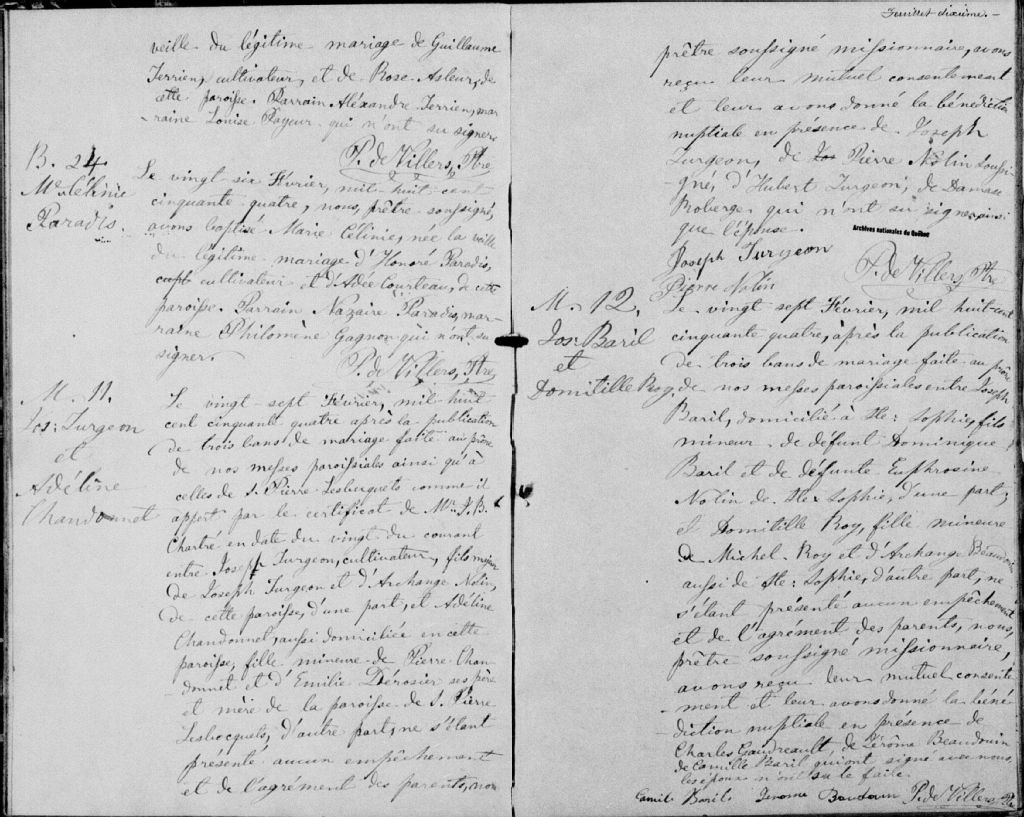 veille du légitime mariage de Guillaume
Terrien, cultivateur, et de Rose de
cette paroisse. Parrain Aléxandre Terrien, mar-
-raine Louise Payeur qui n'ont su signer.
P. de Villers, Ptre
B. 24
Me Célinie
Paradis.
Le vingt six Février, mil-huit-cent
cinquante-quatre, nous, prêtre soussigné,
avons baptisé Marie Célinie, née la veille
du légitime mariage d'Honoré Paradis,
cultivateur et d'Adée Courteau, de cette
paroisse. Parrain Nazaire Paradis, mar-
raine Philomène Gagnon qui n'ont su
signer.
P. de Villers, Ptre
M. 11.
Jos: Turgeon
et
Adéline
Chandonnet
Le vingt-sept Février, mil-huit
cent cinquante quatre après la publication
de trois bans de mariage faite au prône
de nos messes paroissiales ainsi qu'à
celles de S. Pierre Lesbequets comme il
appert par le certificat de Mr. J. B.
Chartré en date du vingt du courant
entre Joseph Turgeon, cultivateur, fils majeur
de Joseph Turgeon et d'Archange Nolin,
de cette paroisse, d'une part, et Adéline
Chandonnet, aussi domiciliée en cette
paroisse, fille mineure de Pierre Chan-
-donnet et d'Emilie Dérosier ses père
et mère de la paroisse de S. Pierre
Lesbecquets, d'autre part, ne s'étant
présenté aucun empêchement
et de l'agrément des parents, nous
Feuillet dixième.-
prêtre soussigné missionnaire, avons
reçu leur mutuel consentement
et leur avons donné la bénédiction
nuptiale en présence de Joseph
Turgeon, de Pierre Nolin soussi-
gné, d'Hubert Turgeon, de Damase
Roberge qui n'ont su signer ainsi
que l'épouse.
Archives nationales du Québec
Joseph Turgeon
Pierre Nolin
P. de Villers, Ptre
M. 12.
Jos: Baril
et
Domitille Roy.
Le vingt sept Février, mil huit-cent
cinquante quatre, après la publication
de trois bans de mariage faite au prône
de nos messes paroissiales entre Joseph
Baril, domicilié à Ste: Sophie, fils
mineur de défunt Dominique
Baril et de défunte Euphrosine
Nolin de Ste: Sophie, d'une part;
et Domitille Roy, fille mineure
de Michel Roy et d'Archange Beaudoin
aussi de Ste: Sophie, d'autre part, ne
s'étant présenté aucun empêchement
et de l'agrément des parents, nous,
prêtre soussigné missionnaire,
avons reçu leur mutuel consente
-ment et leur avons donné la béné
diction nuptiale en présence de
Charles Gaudreault, de Jérôme Beaudouin
de Camille Baril qui ont signé avec nous,
les époux n'ont su le faire.
Camil Baril Jerome Baudouin P. de Villers, Ptre